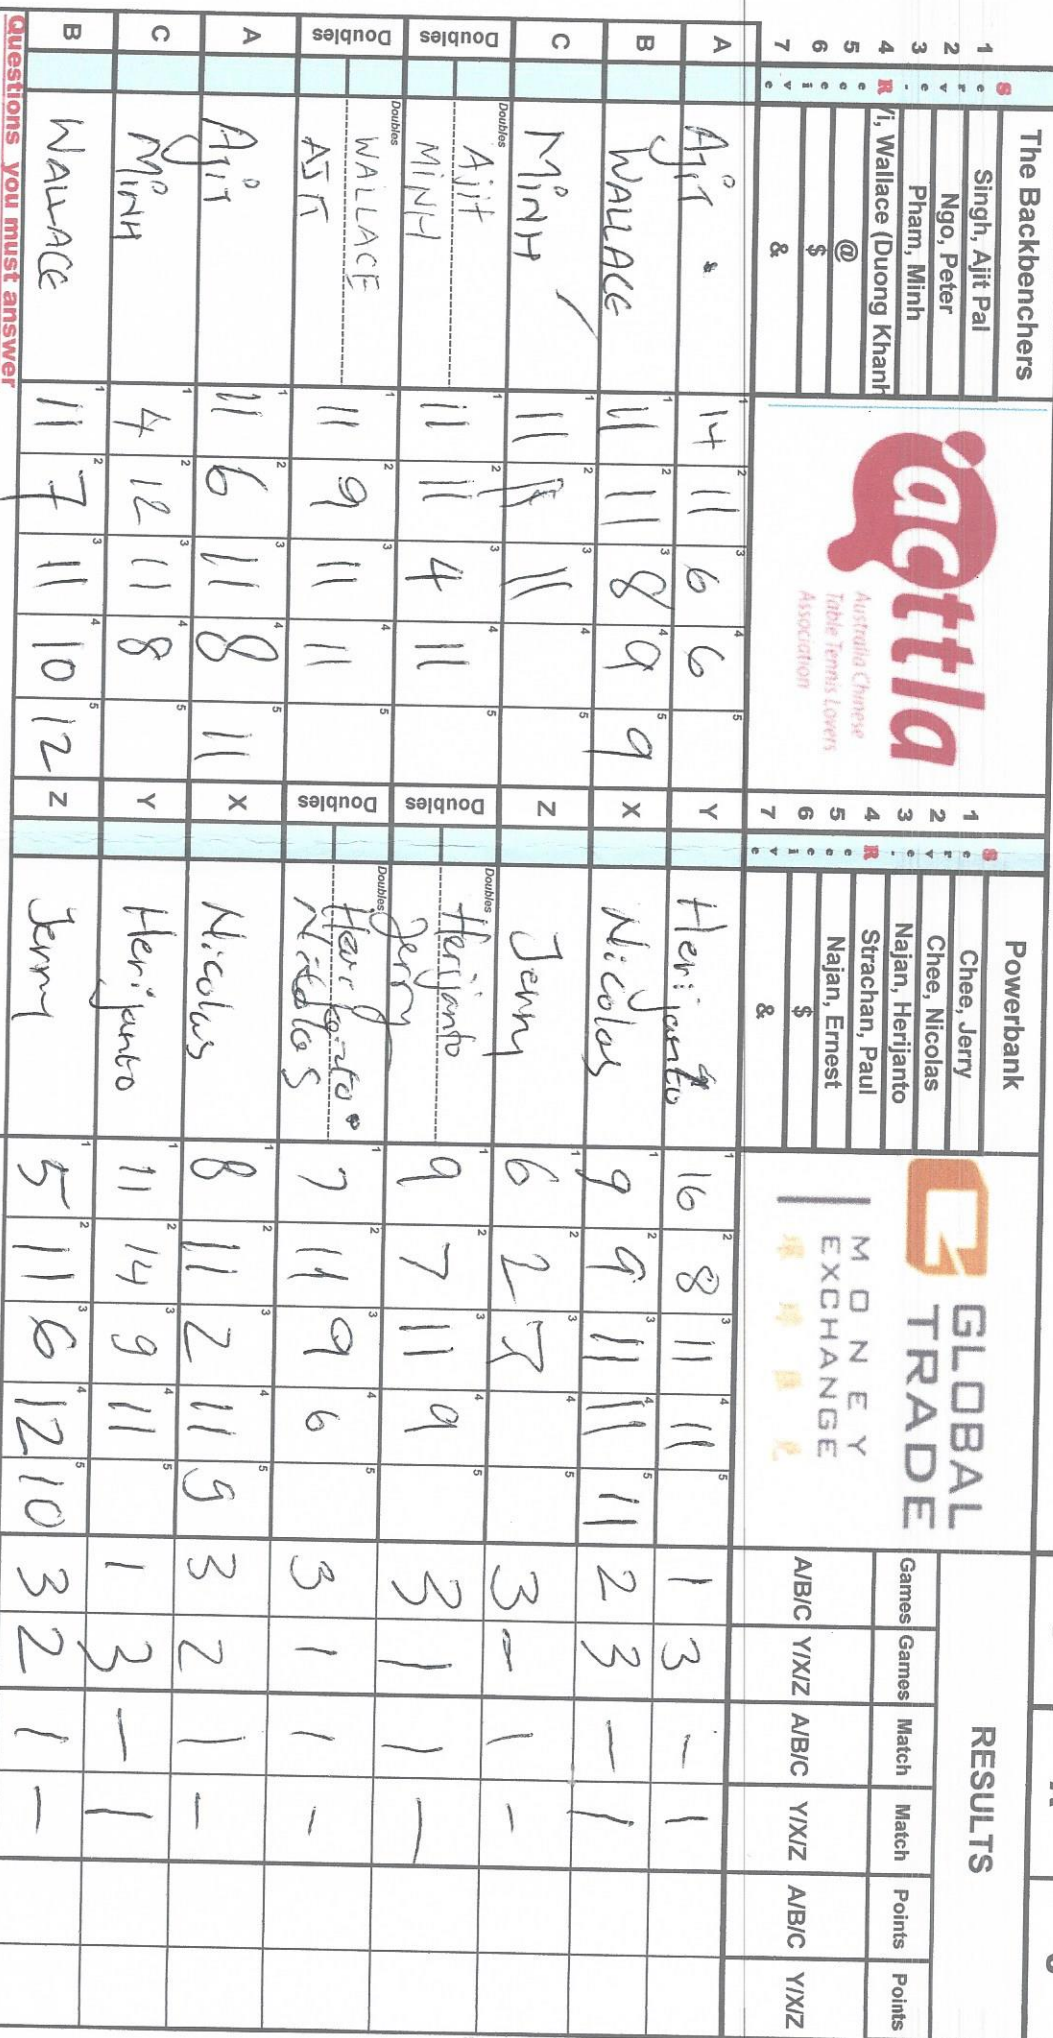 The Backbenchers
1 Singh, Ajit Pal
2 Ngo, Peter
3 Pham, Minh
4 R i, Wallace (Duong Khanh
5 @
6 $
7 &
acttla
Australia Chinese
Table Tennis Lovers
Association
Powerbank
1 Chee, Jerry
2 Chee, Nicolas
3 Najan, Herijanto
4 R Strachan, Paul
5 Najan, Ernest
6 $
7 &
GLOBAL
TRADE
MONEY
EXCHANGE
RESULTS
Games Games Match Match Points Points
A/B/C Y/X/Z A/B/C Y/X/Z A/B/C Y/X/Z
A Ajit 14 11 6 6 Y Herijanto 16 8 11 11 1 3 - 1
B WALLACE 11 11 8 9 9 X Nicolas 9 9 11 11 11 2 3 - 1
C MINH 11 11 11 Z Jerry 6 2 5 3 - 1 -
Doubles Doubles Ajit 11 11 4 11 Doubles Doubles Herijanto 9 7 11 9 3 1 1 -
MINH Jerry
Doubles Doubles WALLACE 11 9 11 11 Doubles Doubles Herijanto 7 11 9 6 3 1 1 -
AJIT Nicolas
A AJIT 11 6 11 8 11 X Nicolas 8 11 2 11 9 3 2 1 -
C MINH 4 12 11 8 Y Herijanto 11 14 9 11 1 3 - 1
B WALLACE 11 7 11 10 12 Z Jerry 5 11 6 12 10 3 2 1 -
Questions you must answer